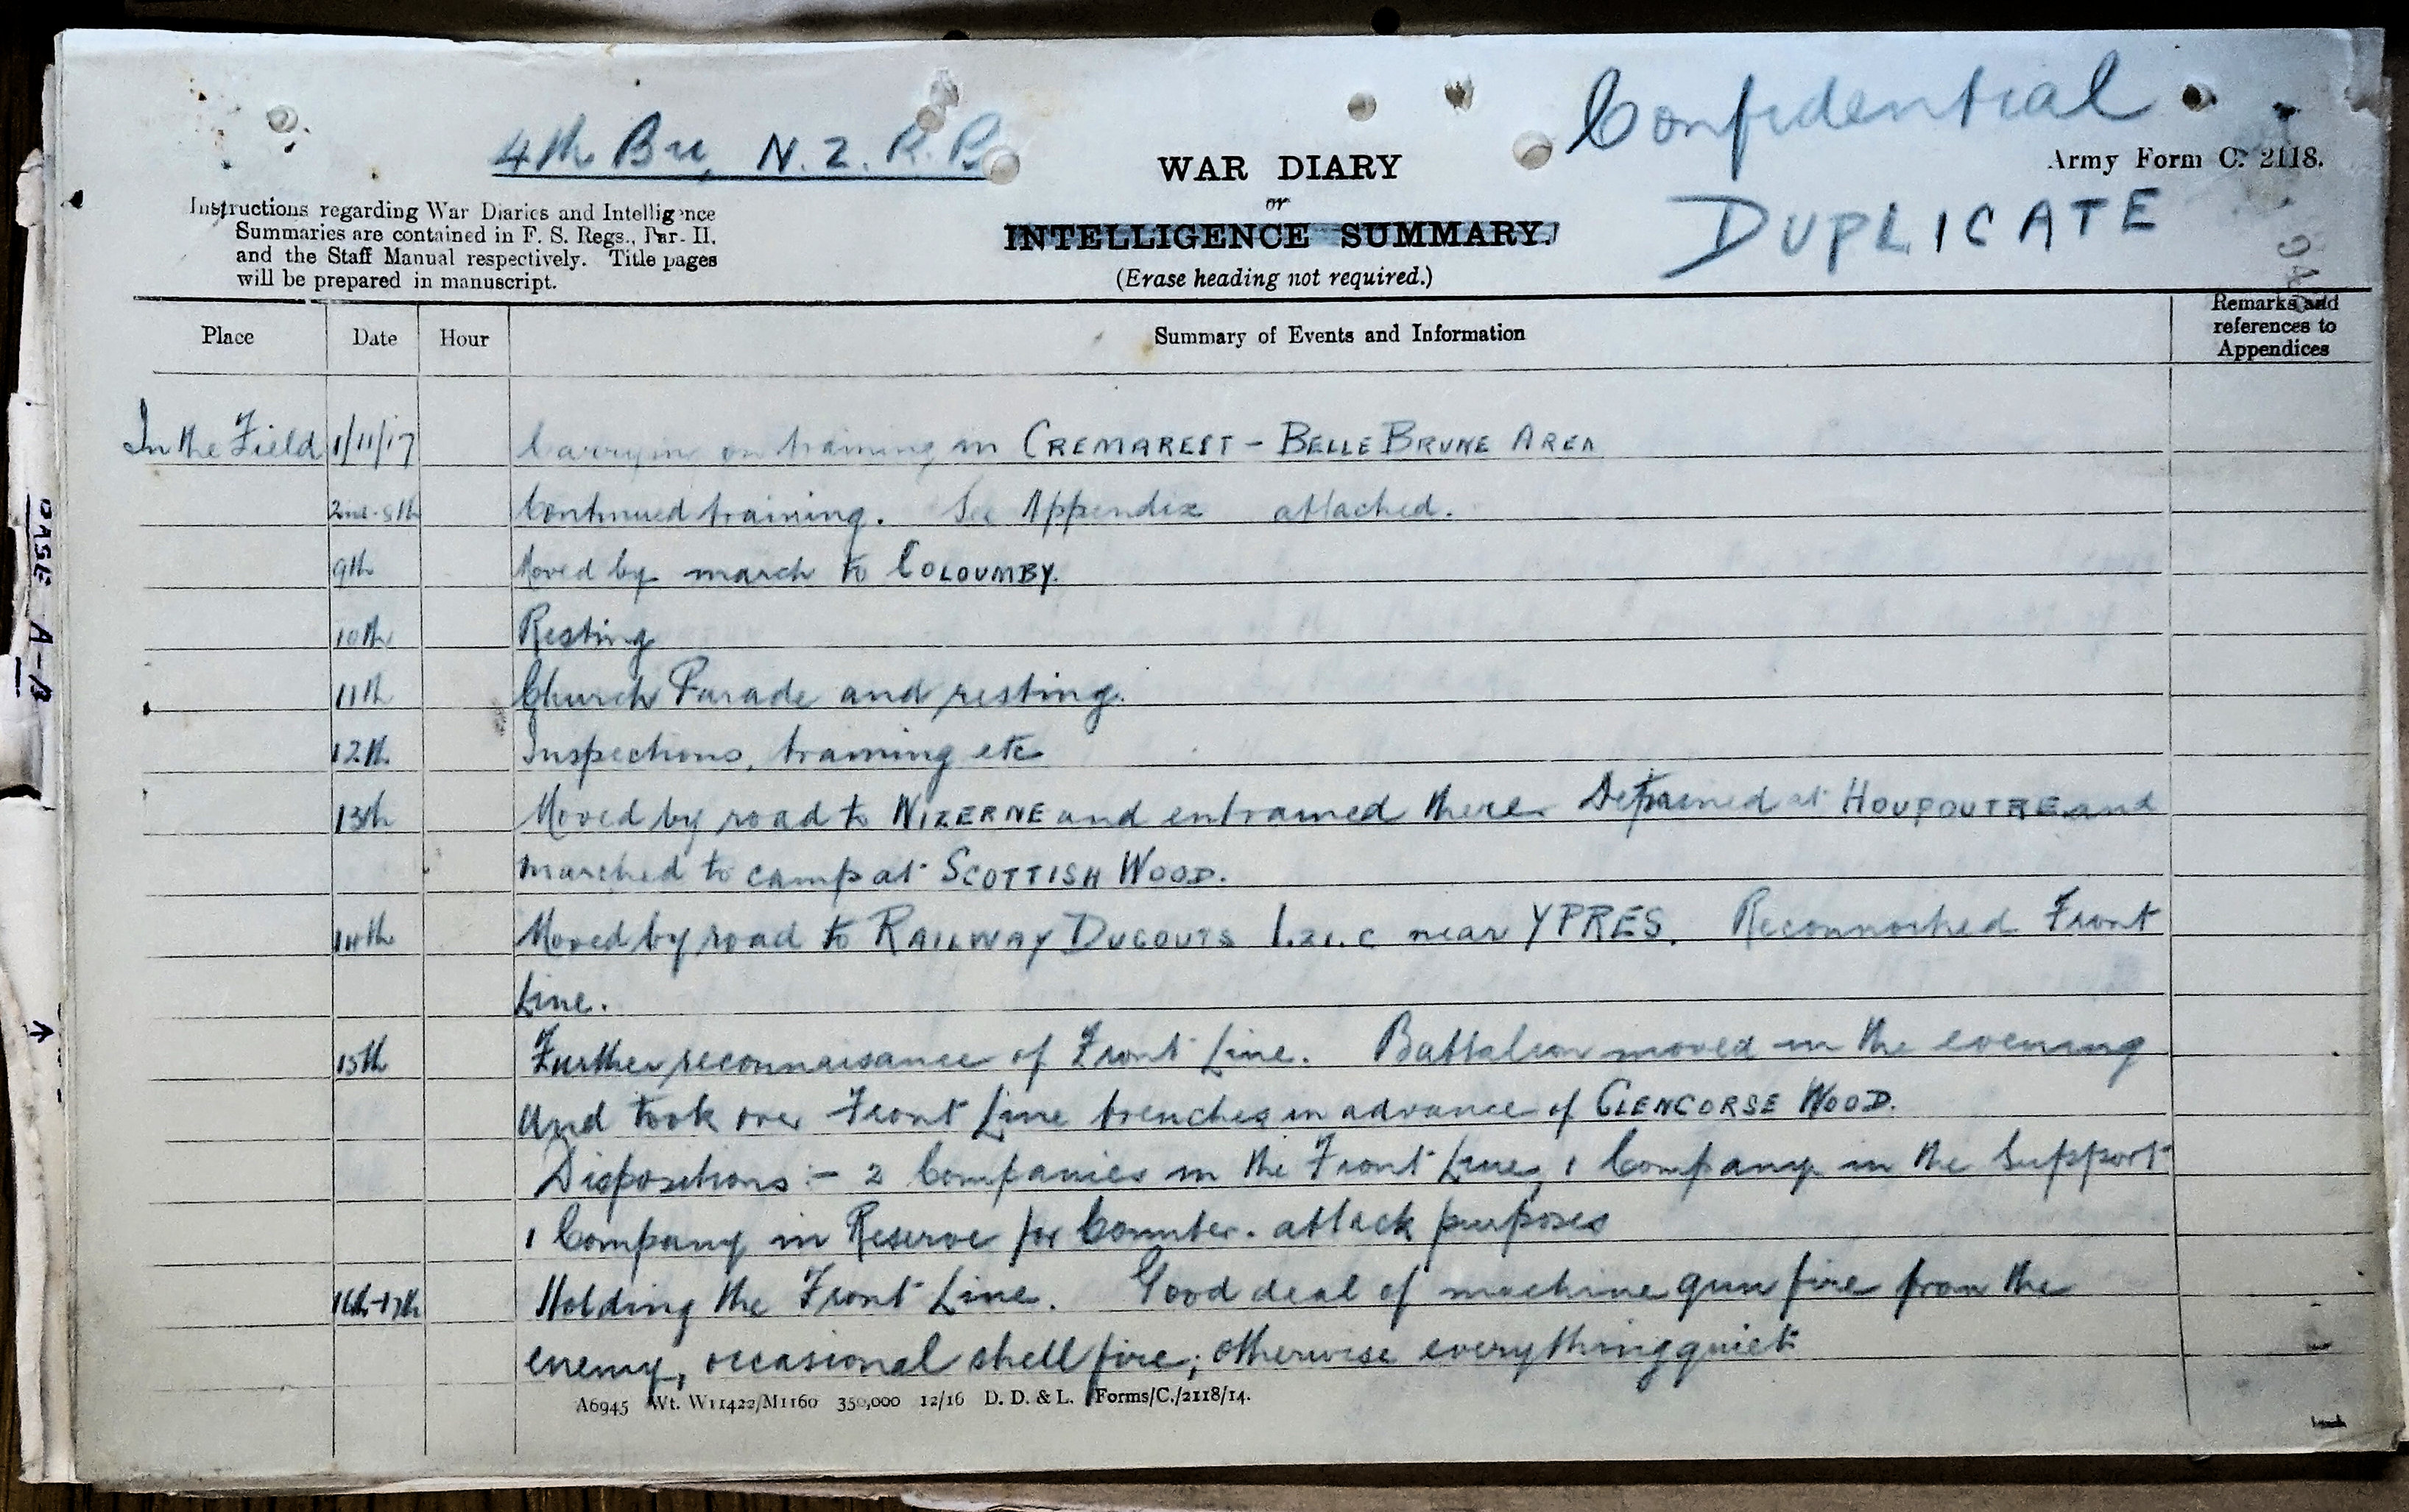 4th Bn, N.Z.R.B.
Confidential
WAR DIARY
Army Form C. 2118.
or
DUPLICATE
INTELLIGENCE SUMMARY.
(Erase heading not required.)
Instructions regarding War Diaries and Intelligence
Summaries are contained in F. S. Regs., Par. II.
and the Staff Manual respectively. Title pages
will be prepared in manuscript.
Place Date Hour Summary of Events and Information Remarks and
references to
Appendices
In the Field 1/11/17 Carrying on training in CREMAREST - BELLE BRUNE AREA
2nd-8th Continued training. See Appendix attached.
9th Moved by march to COLOUMBY.
10th Resting
11th Church Parade and resting.
12th Inspections, training etc
13th Moved by road to WIZERNE and entrained there. Detrained at HOUPOUTRE and
marched to camp at SCOTTISH WOOD.
14th Moved by road to RAILWAY DUGOUTS I.21.C near YPRES. Reconnoitred Front
Line.
15th Further reconnaisance of Front Line. Battalion moved in the evening
and took over Front Line trenches in advance of GLENCORSE WOOD.
Dispositions :- 2 Companies in the Front Line, 1 Company in the Support
1 Company in Reserve for Counter-attack purposes
16th-17th Holding the Front Line. Good deal of machine gun fire from the
enemy, occasional shell fire; otherwise everything quiet
A6945 Wt. W11422/M1160 350,000 12/16 D. D. & L. Forms/C./2118/14.